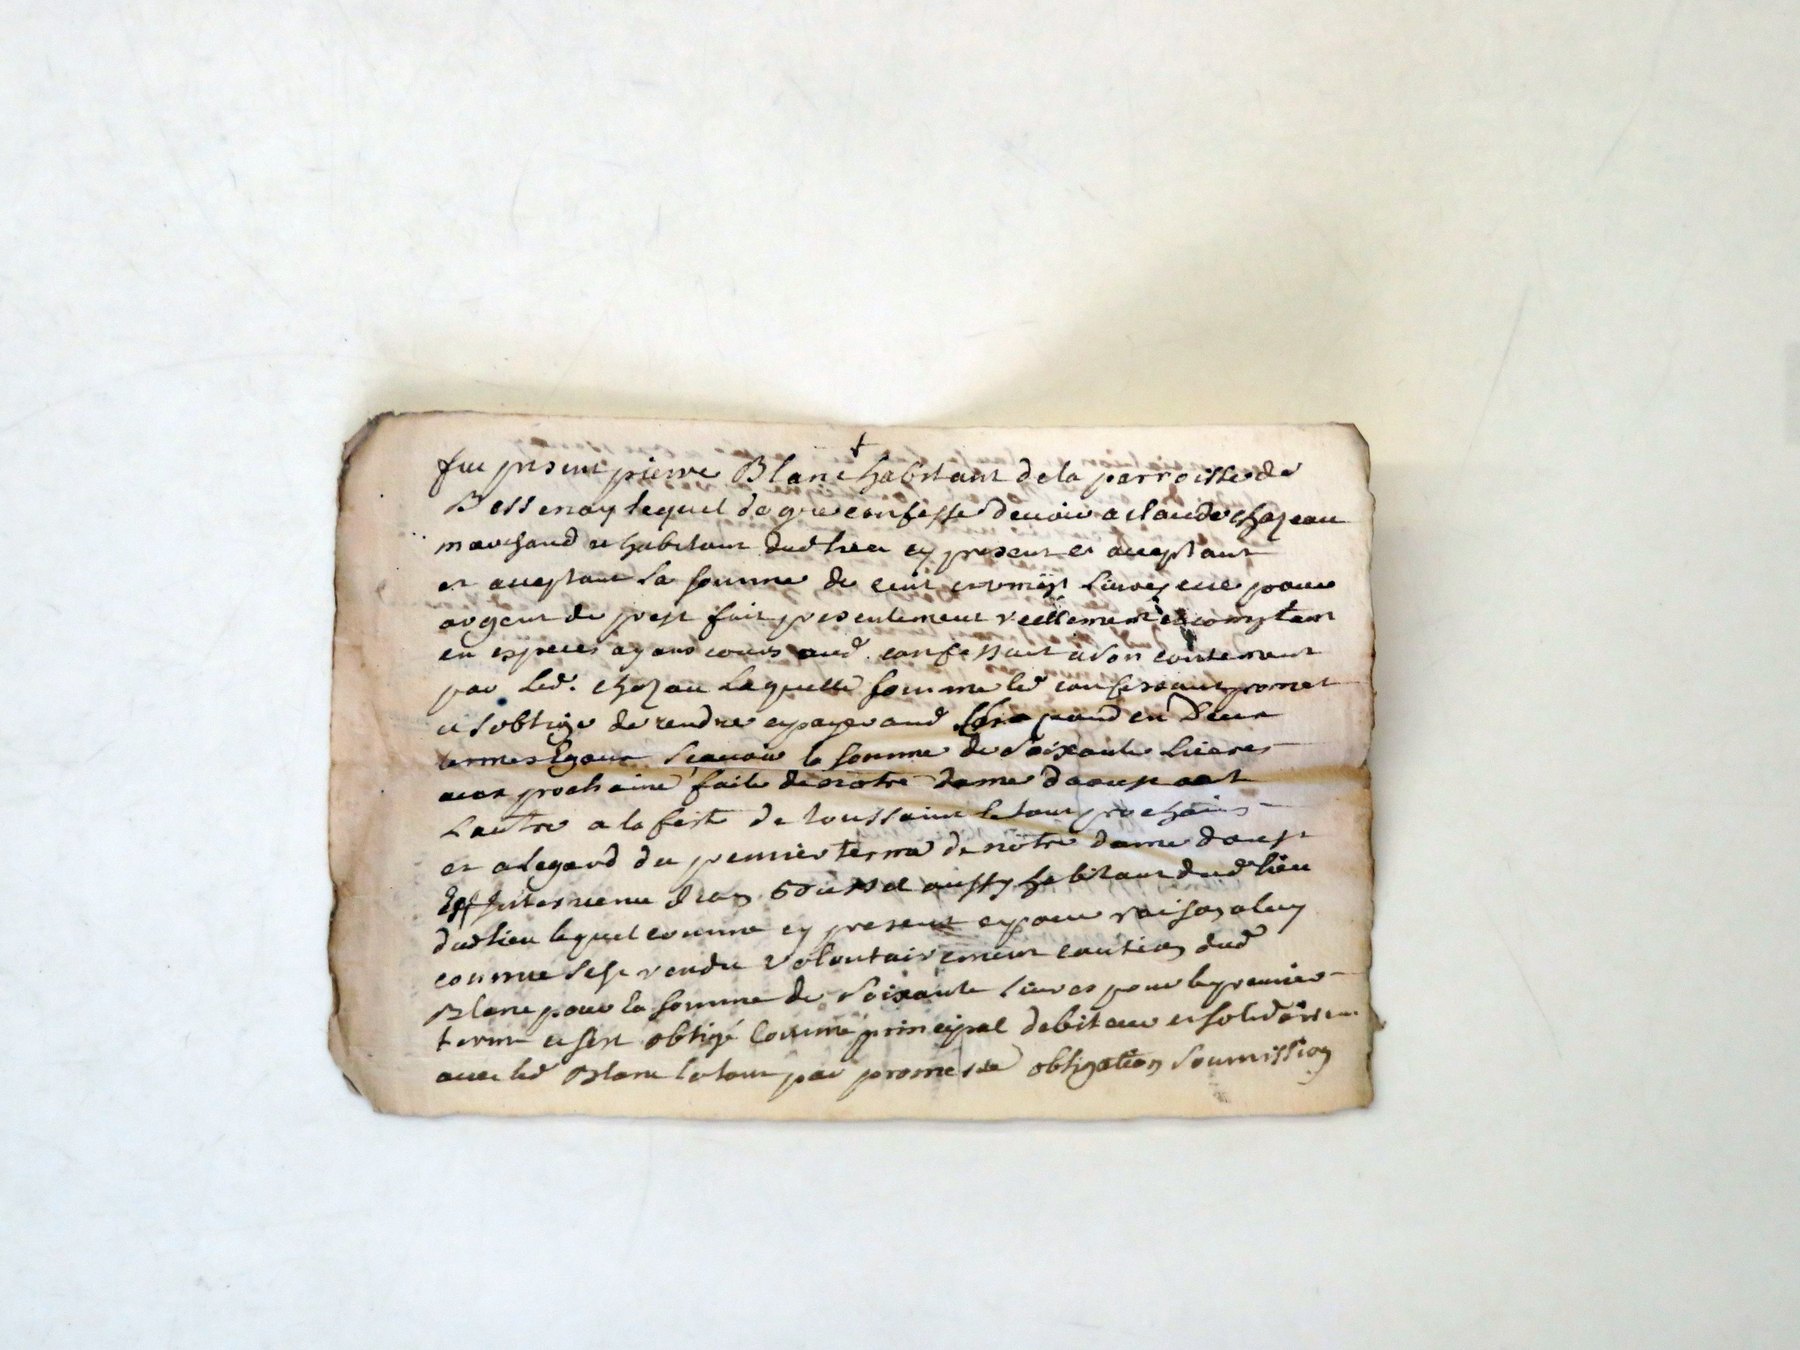 fut present pierre Blanc habitant de la parroisse de
Bessenay lequel de gre confesse devoir a claude chazeau
marchand et habitant dud lieu cy present et acceptant
et acceptant la somme de cent et vingt livres pour
argent de prest fait presentement reellement et comptant
en especes ayant cours aud. confessant a son contement
par led. chazeau laquelle somme led confessant promet
et soblige de rendre et payer aud en deux
termes Egaux scavoir la somme de soixante livres
prochaine faite de notre dame daoust
Lautre a la feste de toussaint le tout prochain
et a legard du premier terme de notre dame daoust
Est intervenu aussy habitant dud lieu
dud lieu lequel comme cy present et pour raison a luy
connue sest rendu volontairement caution dud
Blanc pour la somme de soixante livres pour le premier
terme et sest obligé comme principal debiteur et
avec led Blanc le tout par promesse obligation soumission